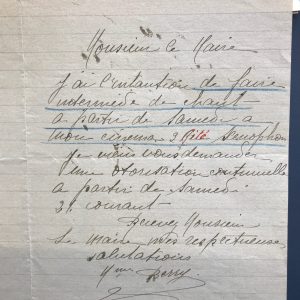 Monsieur le Maire
J'ai l'entantion de faire
intermède de chant
a partir de Samedi a
mon cinema 3 Cité
je viens vous demander
une otorisation continuelle
a partir de Samedi
31 courant
Recevez Monsieur
le Maire mes respectueuses
salutations